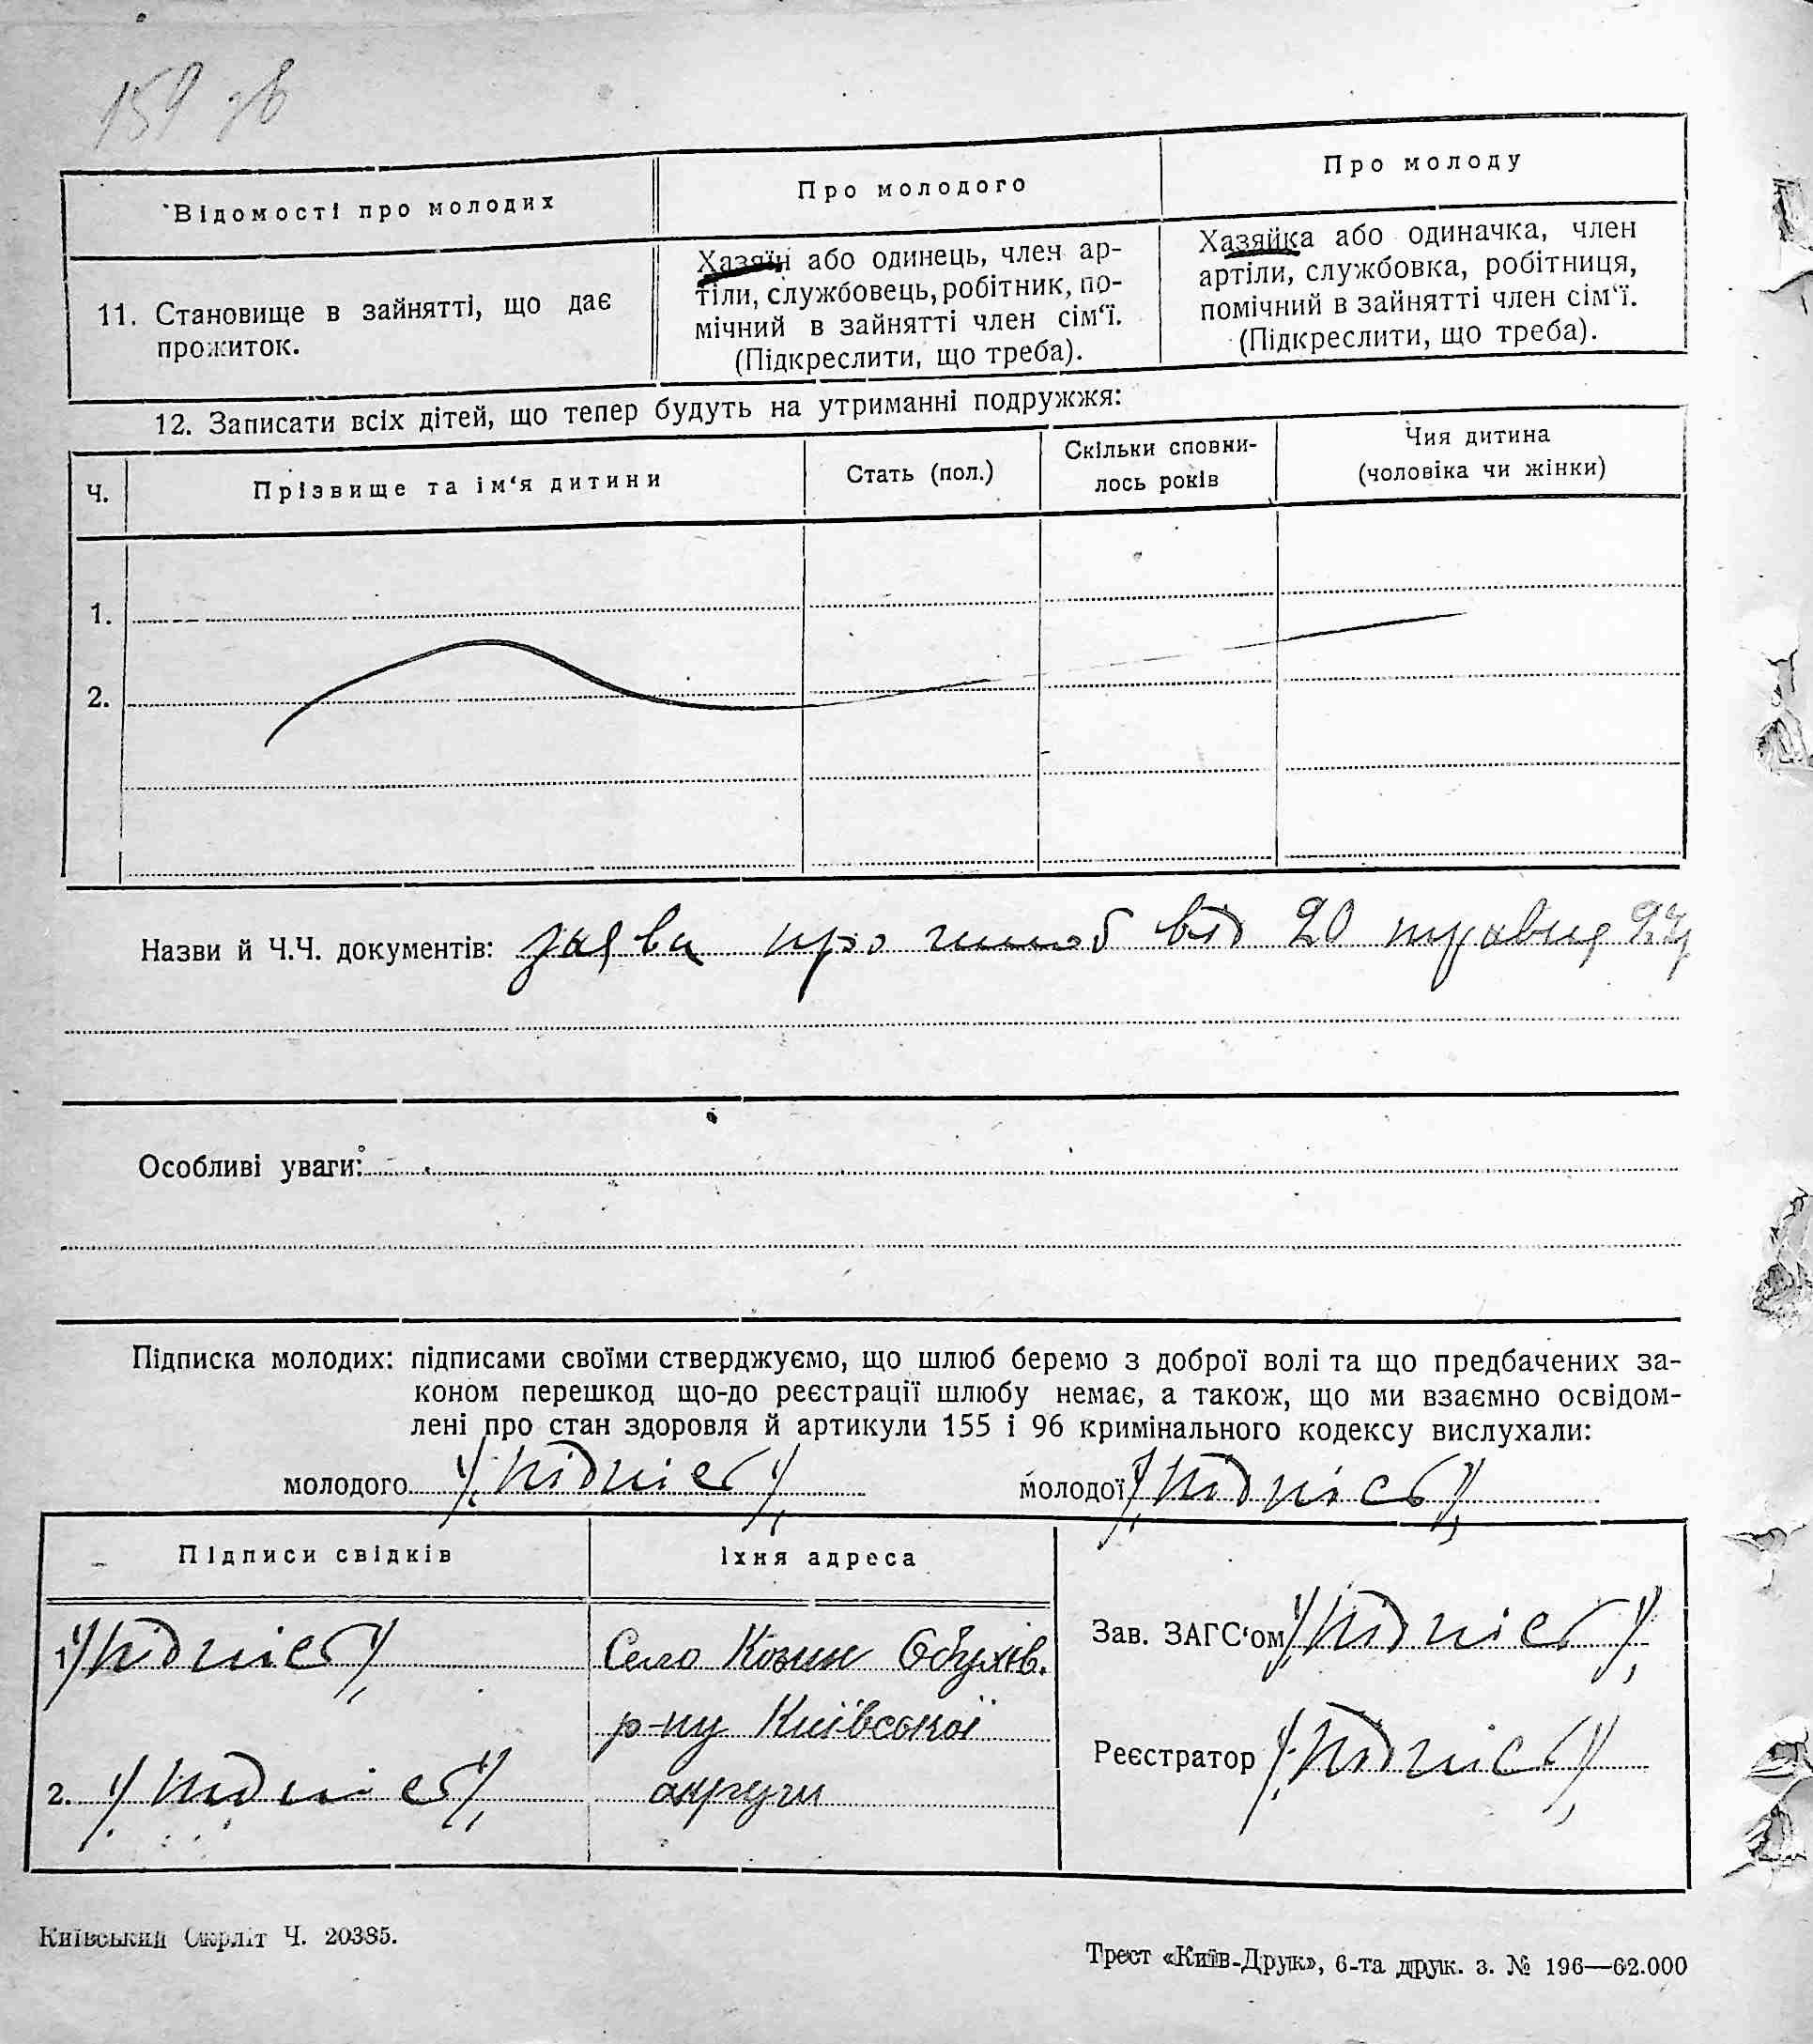 159 зв
Відомості про молодих
Про молодого
Про молоду
11. Становище в зайнятті, що дає
прожиток.
Хазяїн або одинець, член ар-
тіли, службовець, робітник, по-
мічний в зайнятті член сім‘ї.
(Підкреслити, що треба).
Хазяйка або одиначка, член
артіли, службовка, робітниця,
помічний в зайнятті член сім‘ї.
(Підкреслити, що треба).
12. Записати всіх дітей, що тепер будуть на утриманні подружжя:
Ч.
Прізвище та ім‘я дитини
Стать (пол.)
Скільки сповни-
лось років
Чия дитина
(чоловіка чи жінки)
1.
2.
Назви й Ч.Ч. документів: заява про шлюб від 20 травня
Особливі уваги:
Підписка молодих: підписами своїми стверджуємо, що шлюб беремо з доброї волі та що предбачених за-
коном перешкод що-до реєстрації шлюбу немає, а також, що ми взаємно освідом-
лені про стан здоровля й артикули 155 і 96 кримінального кодексу вислухали:
молодого /підпис/ молодої /підпис/
Підписи свідків
Їхня адреса
1 /підпис/
Село Козин Обухів.
р-ну Київської
2. /підпис/
округи
Зав. ЗАГС‘ом /підпис/
Реєстратор /підпис/
Київський Окрліт Ч. 20385.
Трест «Київ-Друк», 6-та друк. з. № 196—62.000